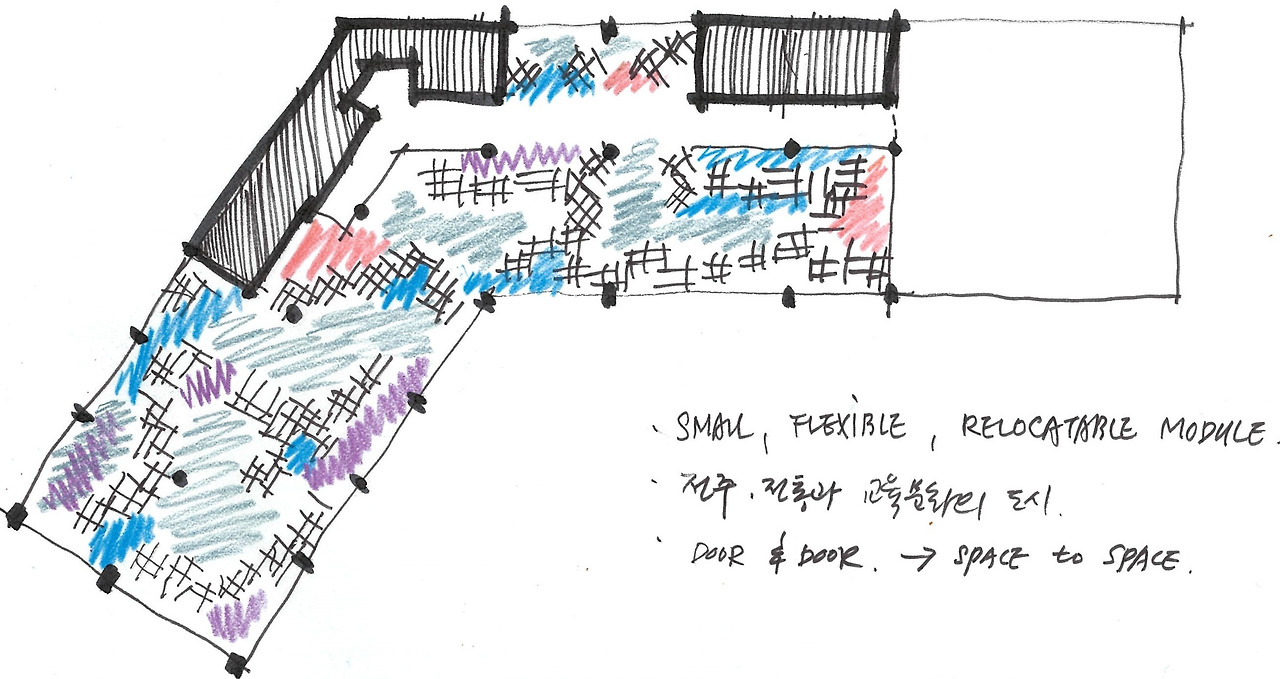 · SMALL, FLEXIBLE, RELOCATABLE MODULE.
· 전주. 전통과 교육문화의 도시.
· DOOR & DOOR. → SPACE to SPACE.